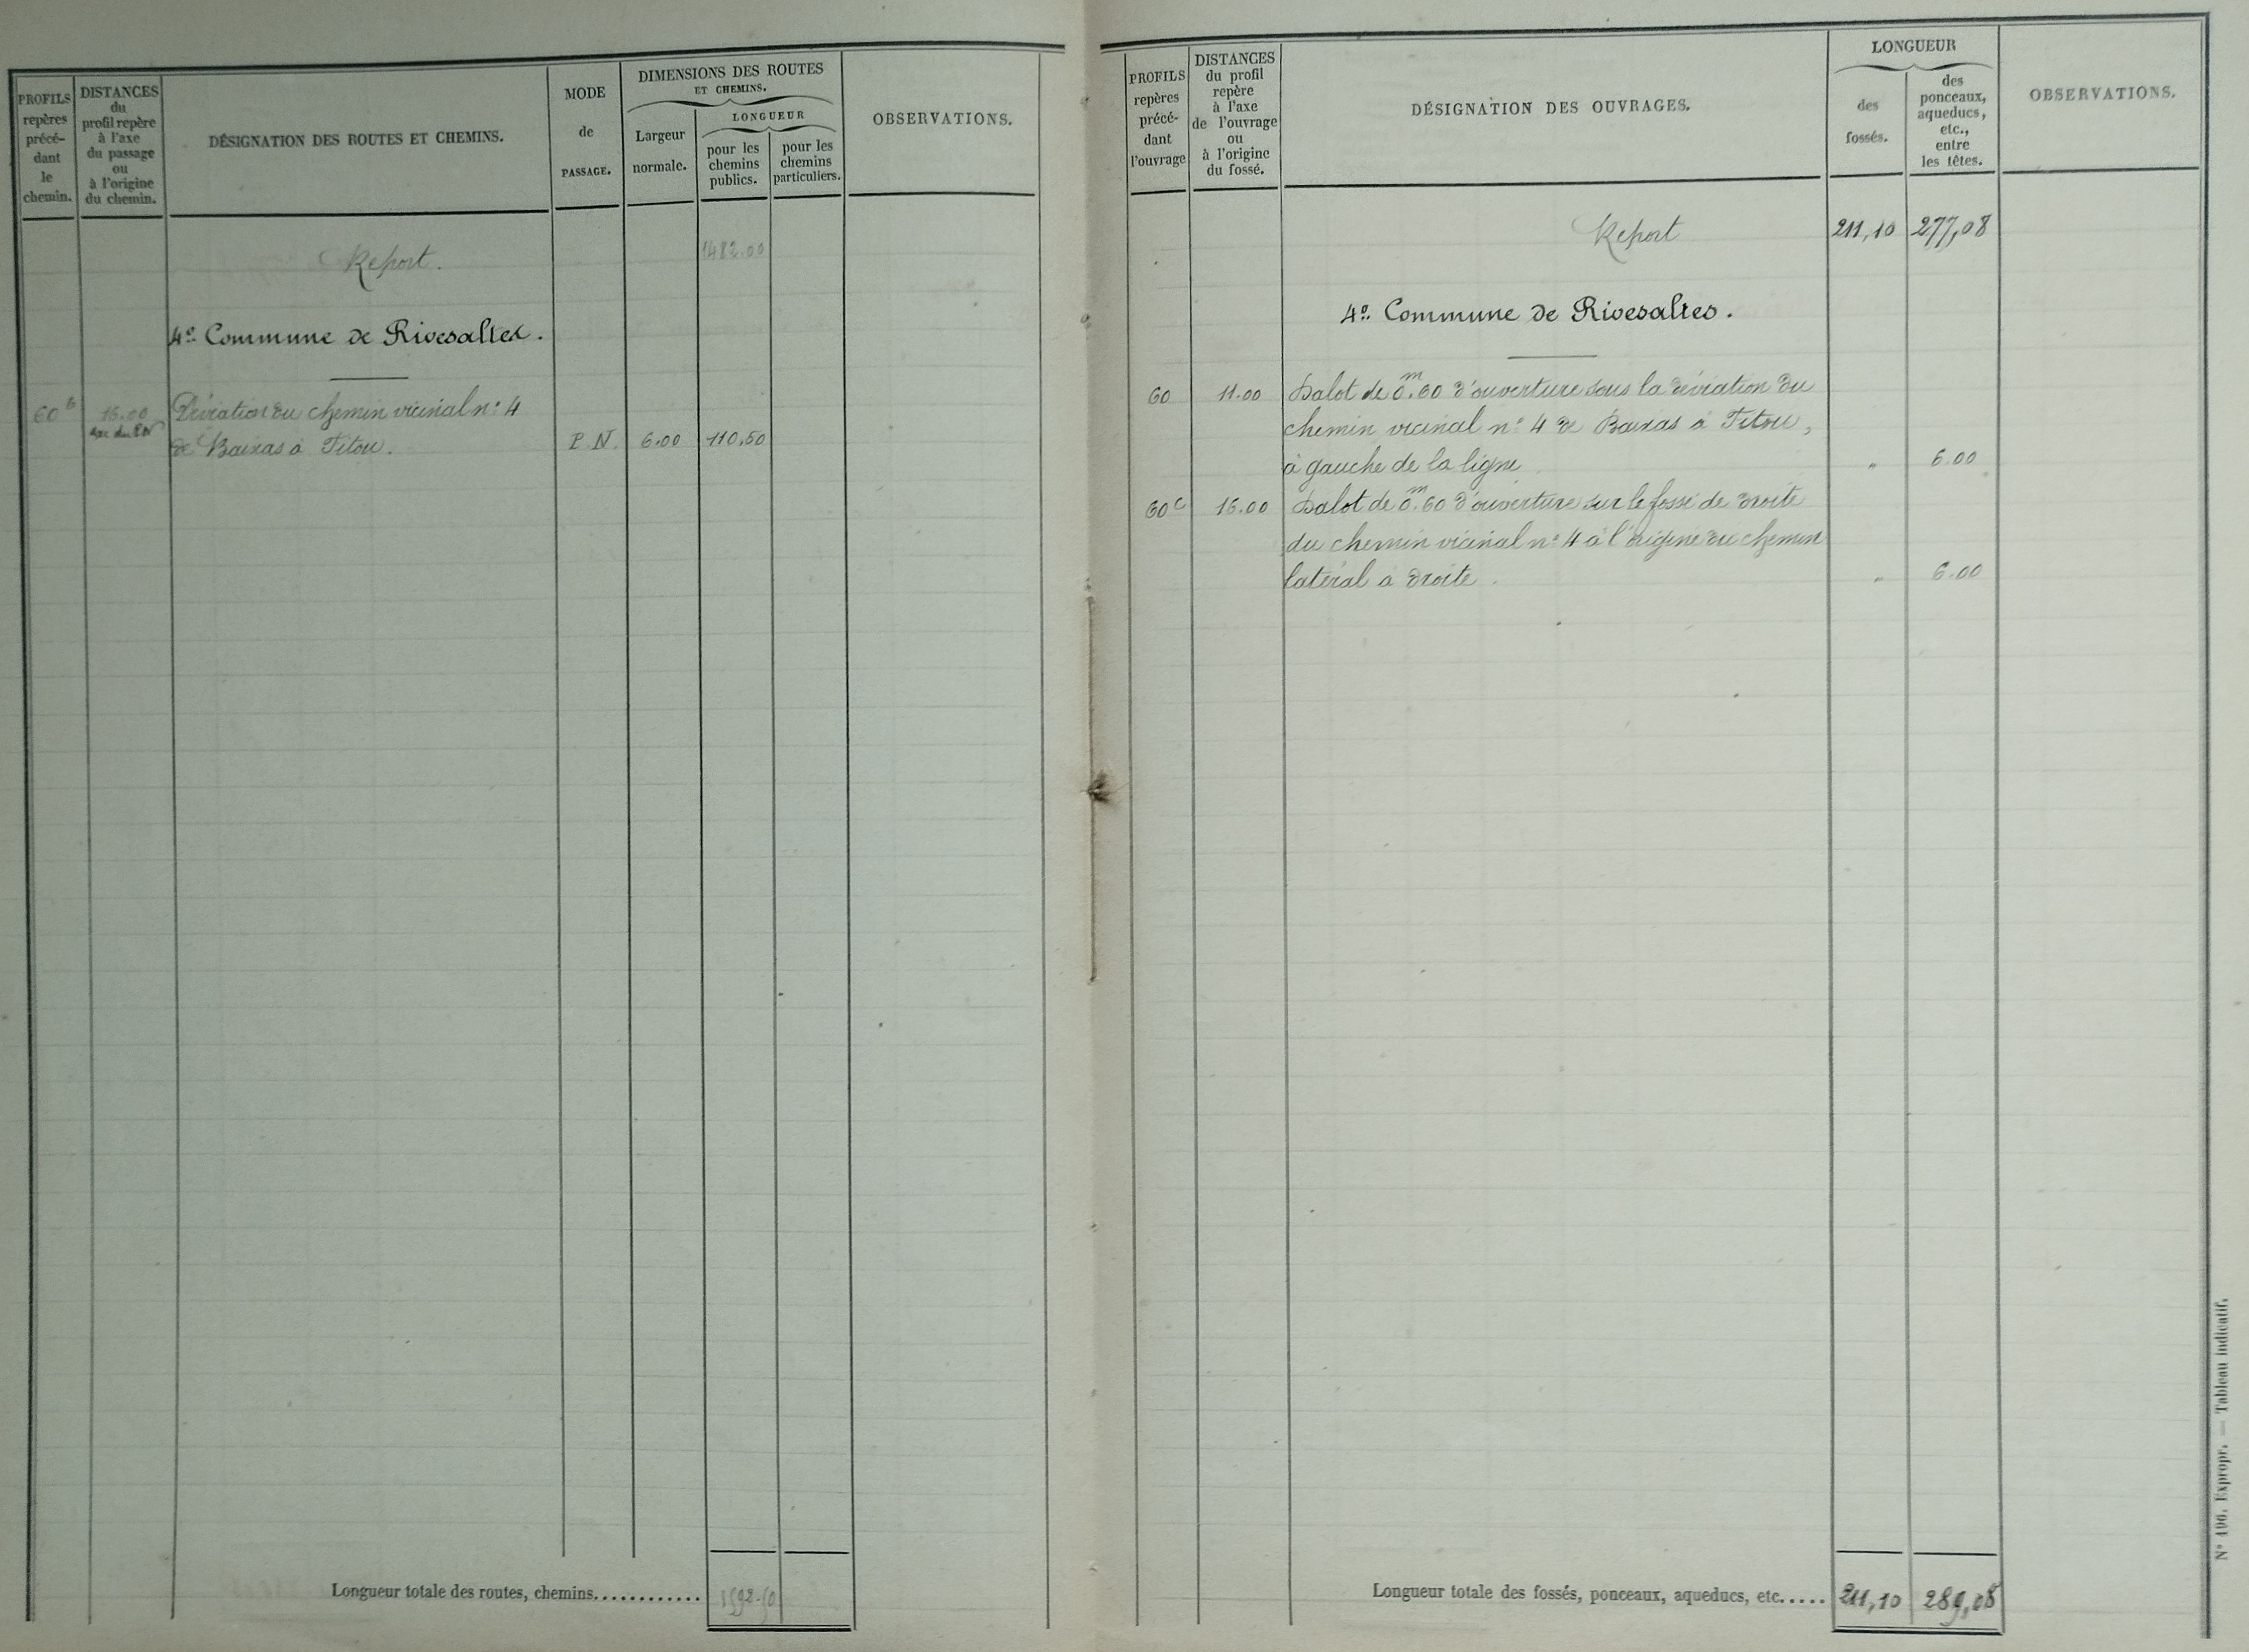 PROFILS
repères
précé-
dant
le
chemin.
DISTANCES
du
profil repère
à l'axe
du passage
ou
à l'origine
du chemin.
DÉSIGNATION DES ROUTES ET CHEMINS.
MODE
de
PASSAGE.
DIMENSIONS DES ROUTES
ET CHEMINS.
Largeur
normale.
LONGUEUR
pour les
chemins
publics.
pour les
chemins
particuliers.
OBSERVATIONS.
Report. 1482.00
4º. Commune de Rivesaltes.
60 b 16.00 Déviation du chemin vicinal nº 4
axe du PN
de Baixas à Fitou. P.N. 6.00 110,50
Longueur totale des routes, chemins............ 1592.50
PROFILS
repères
précé-
dant
l'ouvrage
DISTANCES
du profil
repère
à l'axe
de l'ouvrage
ou
à l'origine
du fossé.
DÉSIGNATION DES OUVRAGES.
LONGUEUR
des
fossés.
des
ponceaux,
aqueducs,
etc.,
entre
les têtes.
OBSERVATIONS.
Report 211,10 277,08
4º. Commune de Rivesaltes.
60 11.00 Dalot de 0m.60 d'ouverture sous la déviation du
chemin vicinal nº 4 de Baixas à Fitou,
à gauche de la ligne. " 6.00
60 c 16.00 Dalot de 0m.60 d'ouverture sur le fossé de droite
du chemin vicinal nº 4 à l'origine du chemin
latéral à droite. " 6.00
Longueur totale des fossés, ponceaux, aqueducs, etc..... 211,10 289,08
Nº 196. Expropr. — Tableau indicatif.